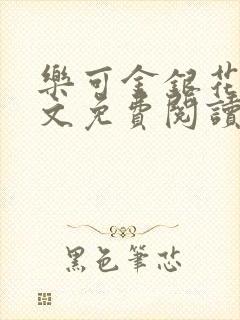 樂可金銀花
文免費閱讀
黑色筆芯